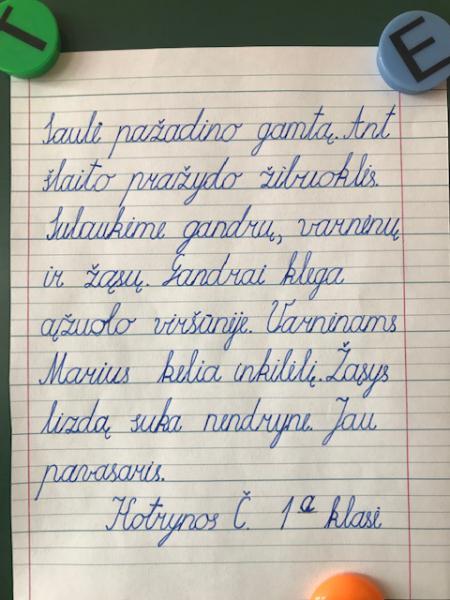 T
E
Saulė pažadino gamtą. Ant
šlaito pražydo žibuoklės.
Sulaukėme gandrų, varnėnų
ir žąsų. Gandrai klega
ąžuolo viršūnėje. Varnėnams
Marius kelia inkilėlį. Žąsys
lizdą suka nendryne. Jau
pavasaris.
Kotrynos Č. 1a klasė